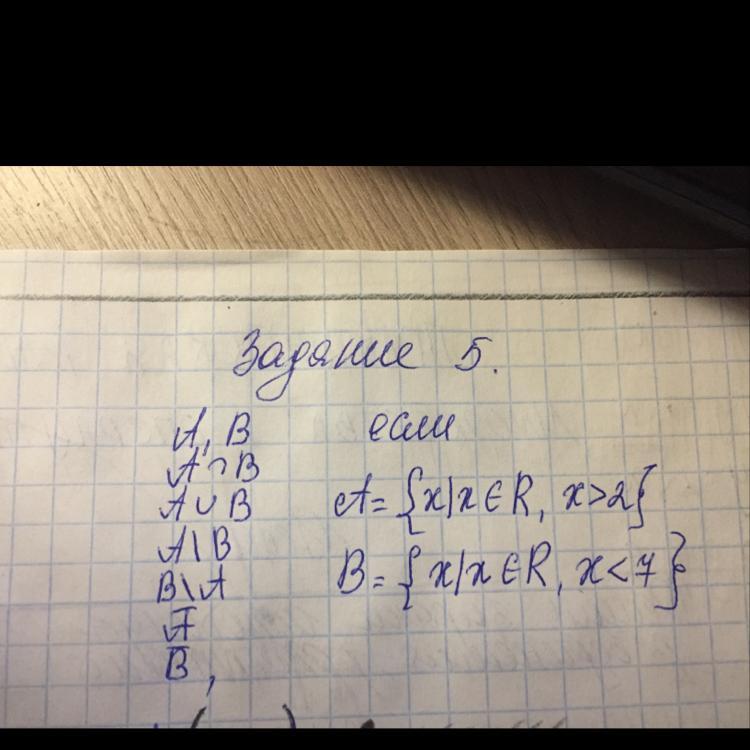 Задание 5.
A, B если
A∩B
A∪B A = {x|x∈R, x>2}
A\B
B\A B = {x|x∈R, x<7}
A̅
B̅,